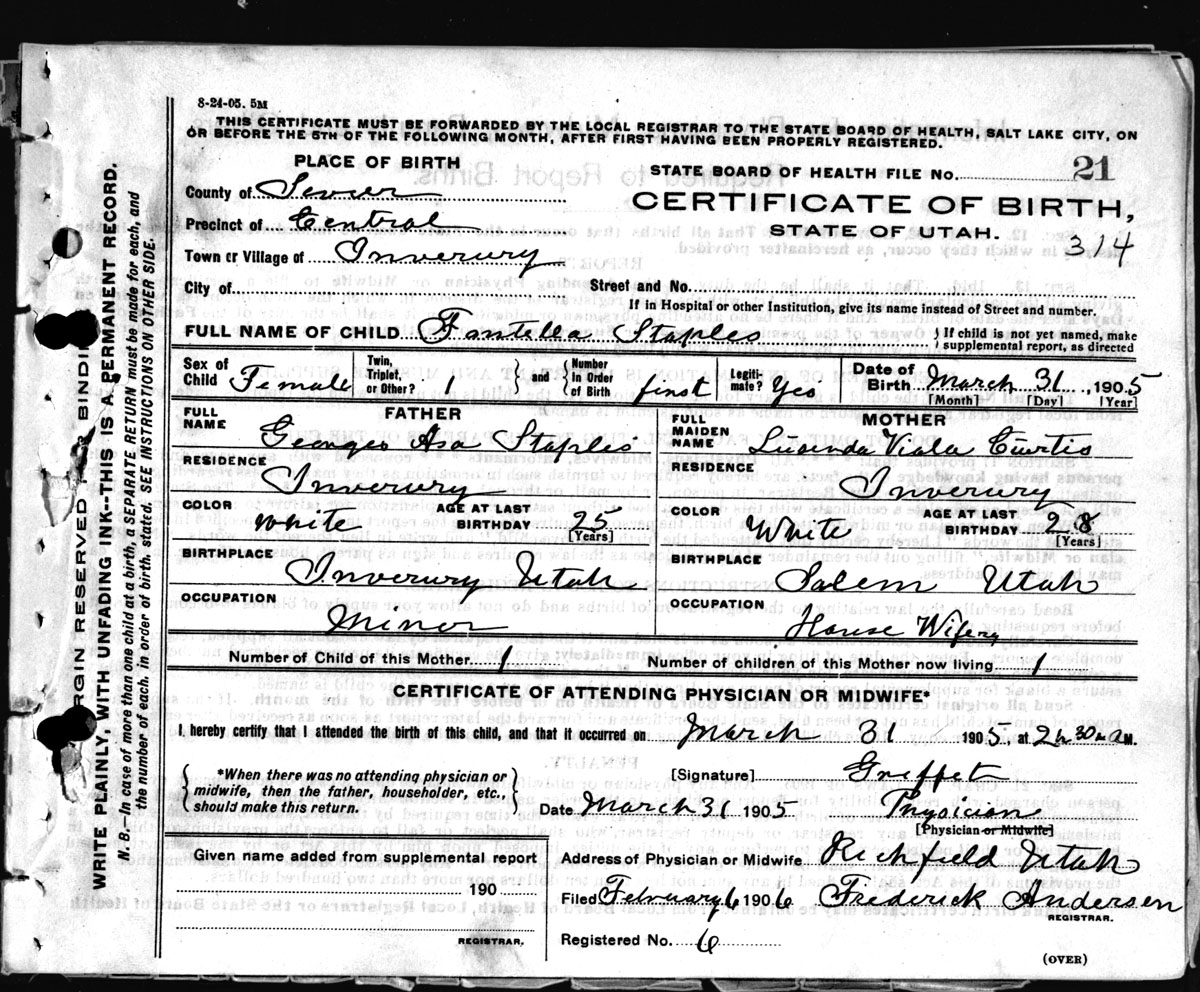 8-24-05. 5M
THIS CERTIFICATE MUST BE FORWARDED BY THE LOCAL REGISTRAR TO THE STATE BOARD OF HEALTH, SALT LAKE CITY, ON
OR BEFORE THE 5TH OF THE FOLLOWING MONTH, AFTER FIRST HAVING BEEN PROPERLY REGISTERED.
PLACE OF BIRTH
County of Sevier
Precinct of Central
Town or Village of Inverury
STATE BOARD OF HEALTH FILE No. 21
CERTIFICATE OF BIRTH,
STATE OF UTAH.
314
City of Street and No.
If in Hospital or other Institution, give its name instead of Street and number.
FULL NAME OF CHILD Fontella Staples { If child is not yet named, make
supplemental report, as directed
Sex of Child Female
Twin, Triplet, or Other? 1 } and { Number In Order of Birth first
Legiti- mate? Yes
Date of Birth March 31, 1905
[Month] [Day] [Year]
FATHER
FULL NAME
George Asa Staples
RESIDENCE
Inverury
COLOR White AGE AT LAST BIRTHDAY 25
[Years]
BIRTHPLACE
Inverury Utah
OCCUPATION
Miner
MOTHER
FULL MAIDEN NAME
Lucinda Viola Curtis
RESIDENCE
Inverury
COLOR White AGE AT LAST BIRTHDAY 28
[Years]
BIRTHPLACE
Salem Utah
OCCUPATION
House Wifery
Number of Child of this Mother 1 Number of children of this Mother now living 1
CERTIFICATE OF ATTENDING PHYSICIAN OR MIDWIFE*
I hereby certify that I attended the birth of this child, and that it occurred on March 31 1905, at 2 h 30 m a M.
{ *When there was no attending physician or
midwife, then the father, householder, etc.,
should make this return. }
[Signature]
Date March 31 1905 Physician
[Physician or Midwife]
Given name added from supplemental report
190
REGISTRAR.
Address of Physician or Midwife Richfield Utah
Filed February 6 1906 Frederick Andersen
REGISTRAR.
Registered No. 6
(OVER)
MARGIN RESERVED FOR BINDING
WRITE PLAINLY, WITH UNFADING INK--THIS IS A PERMANENT RECORD.
N. B.--In case of more than one child at a birth, a SEPARATE RETURN must be made for each, and
the number of each, in order of birth, stated. SEE INSTRUCTIONS ON OTHER SIDE.